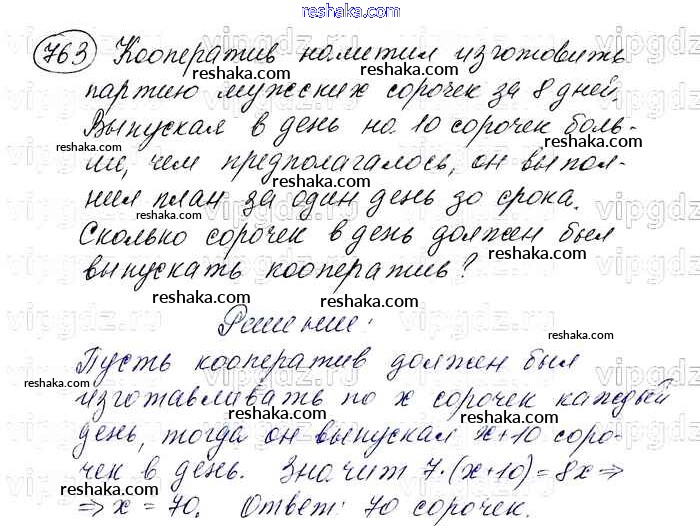 reshaka.com
763 Кооператив наметил изготовить
партию мужских сорочек за 8 дней.
Выпуская в день на 10 сорочек боль-
ше, чем предполагалось, он выпол-
нил план за один день до срока.
Сколько сорочек в день должен был
выпускать кооператив?
Решение:
Пусть кооператив должен был
изготавливать по x сорочек каждый
день, тогда он выпускал x+10 соро-
чек в день. Значит 7·(x+10)=8x⇒
⇒x=70. Ответ: 70 сорочек.